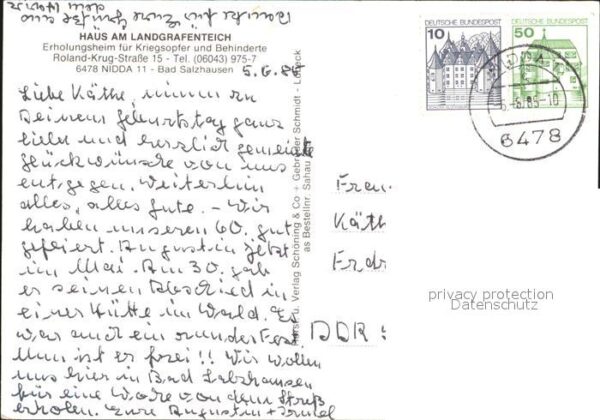 Danke für Eure Grüße aus
dem Harze
HAUS AM LANDGRAFENTEICH
Erholungsheim für Kriegsopfer und Behinderte
Roland-Krug-Straße 15 - Tel. (06043) 975-7
6478 NIDDA 11 - Bad Salzhausen
5.6.85
Liebe Käthe, nimm zu
Deinem Geburtstag ganz
liebe und herzlich gemeinte
Glückwünsche von uns
entgegen. Weiterhin
alles, alles Gute. - Wir
haben unseren 60. gut
gefeiert. Augustin jetzt
im Mai. Am 30. gab
er seinen Abschied in
einer Hütte im Wald. Es
war auch ein rundes Fest.
Nun ist er frei!! Wir wollen
uns hier in Bad Salzhausen
für eine Woche von dem Streß
erholen. Eure Augustin +
Verlag Schöning & Co + Gebrüder Schmidt - Lübeck
as Bestellnr. Sahau
10
DEUTSCHE BUNDESPOST
50
DEUTSCHE BUNDESPOST
NIDDA
-5.6.85-10
6478
Frau
Käth
Frdr
DDR
privacy protection
Datenschutz